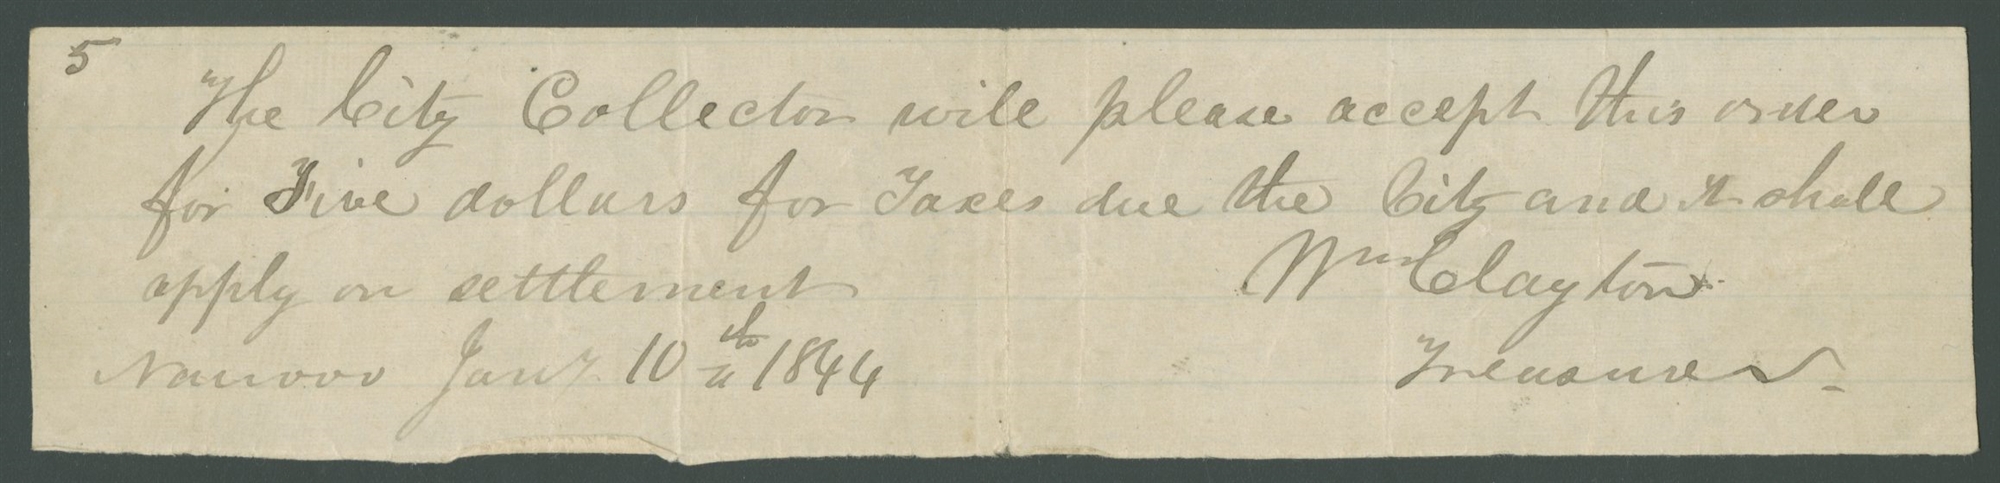 5
The City Collector will please accept this order
for Five dollars for Taxes due the City and it shall
apply on settlement
Wm Clayton
Nauvoo Jany 10th 1844
Treasurer